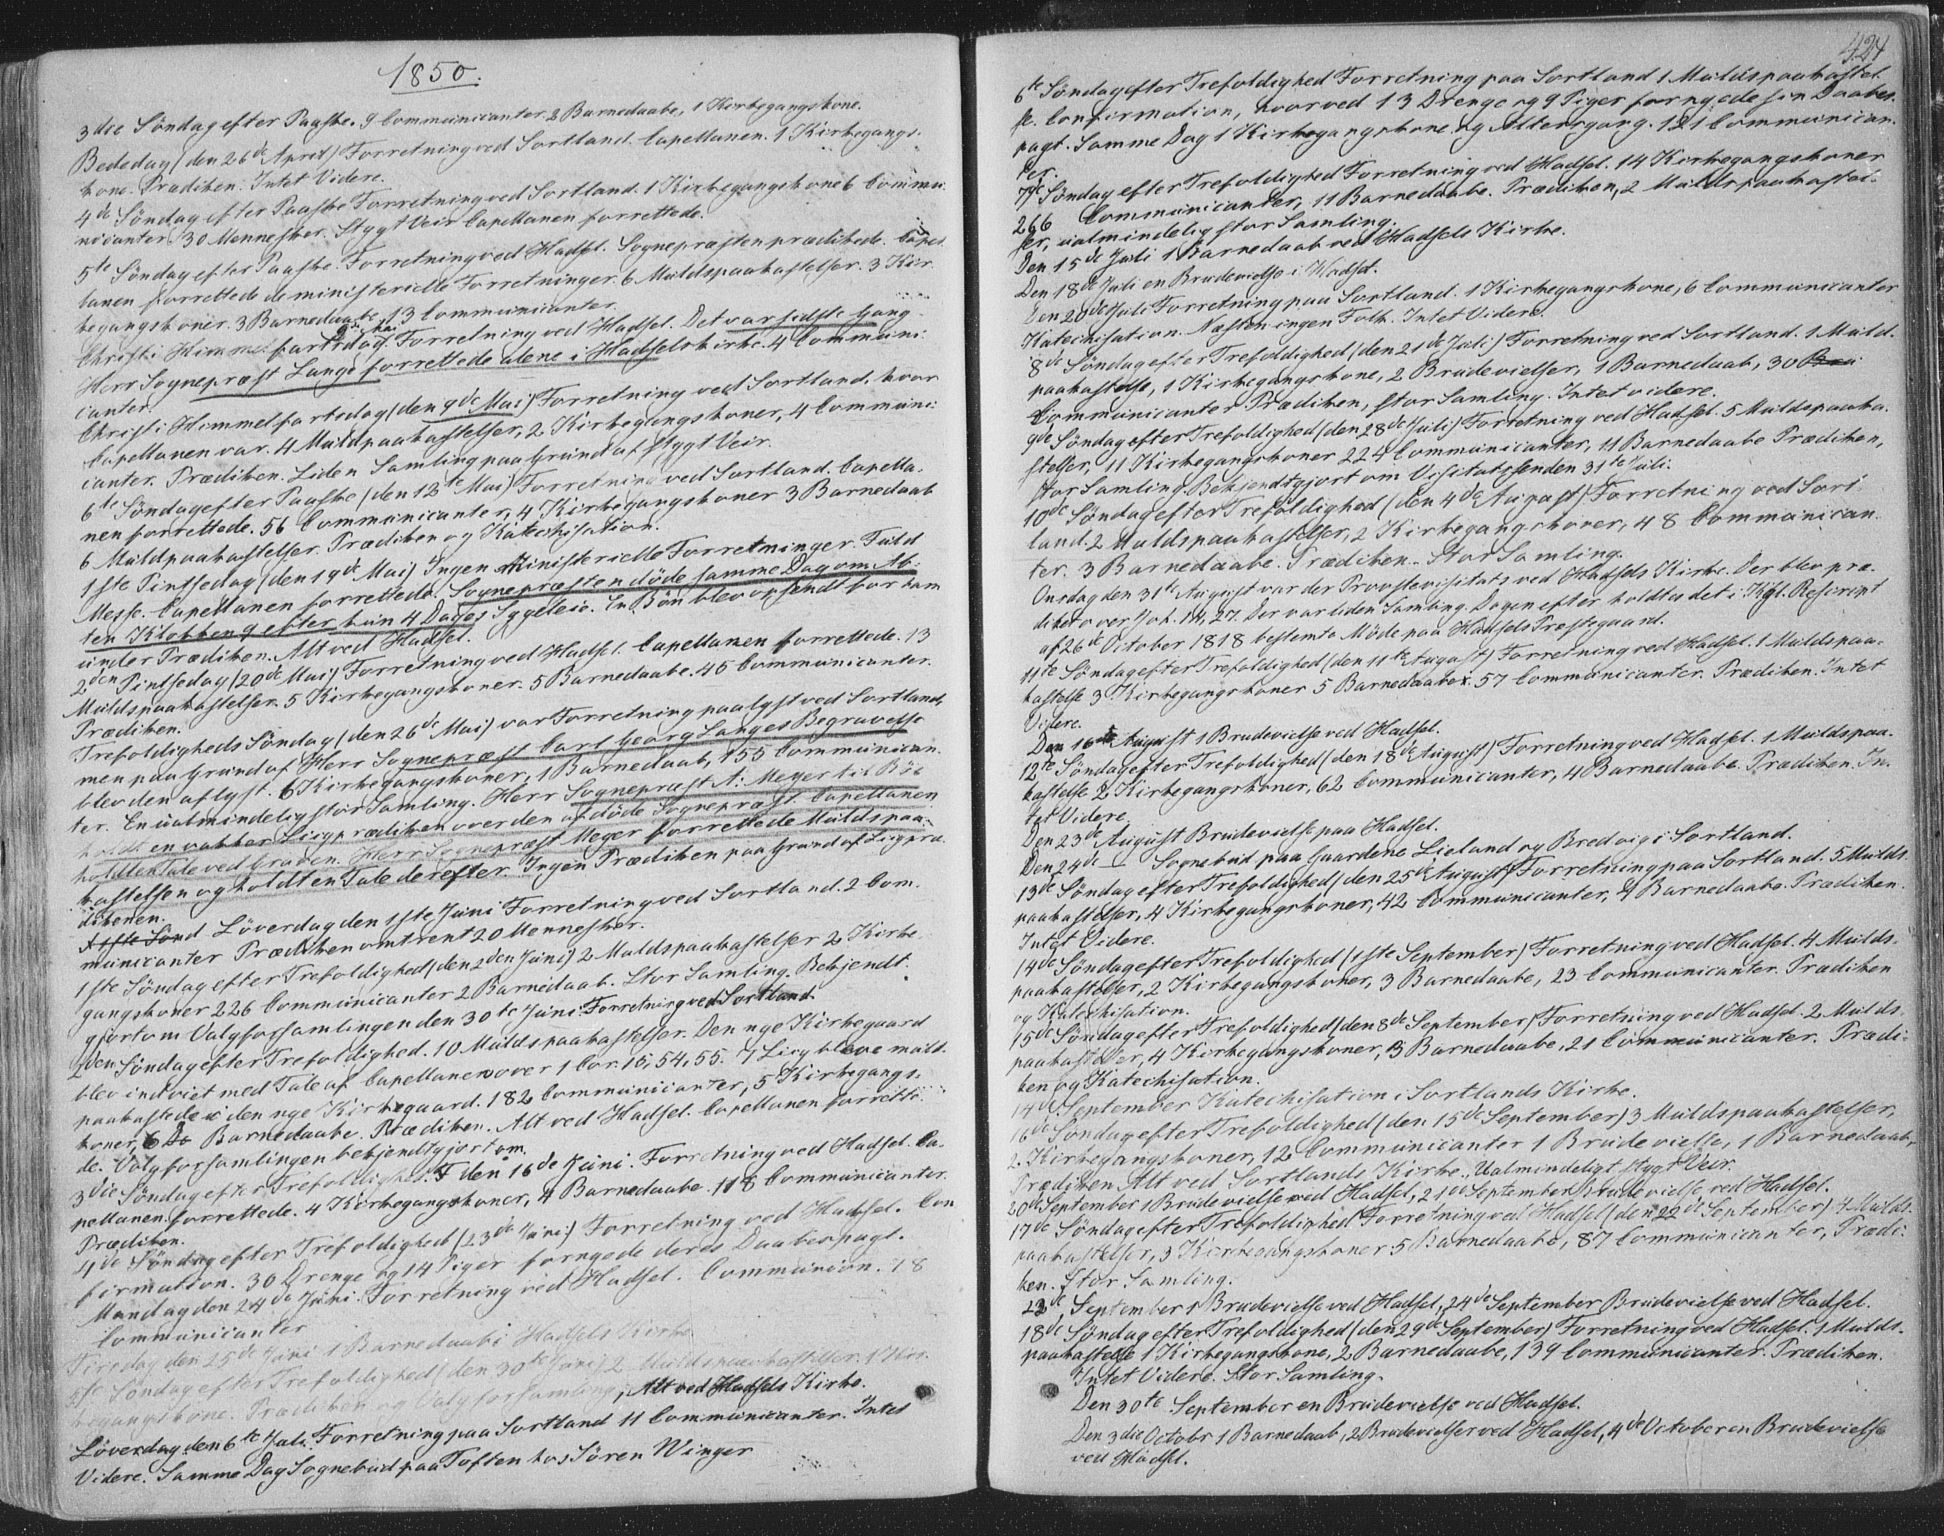 1850.
3die Söndag efter Paaske. 9 Communicanter. 2 Barnedaabe, 1 Kirkegangskone.
Bededag (den 26de April) Forretning ved Sortland. Capellanen. 1 Kirkegangs-
kone. Prædiken. Intet Videre.
4de Söndag efter Paaske Forretning ved Sortland. 1 Kirkegangskone 6 Commu-
nicanter. 30 Mennesker. Stygt Veir Capellanen forrettede.
5te Söndag efter Paaske. Forretning ved Hadsel. Sognepræsten prædikede. Capel-
lanen forrettede de ministerielle Forretninger. 6 Muldspaakastelser. 3 Kir-
kegangskoner. 3 Barnedaabe, 13 Communicanter.
Christi Himmelfartsdag. Forretning ved Hadsel. Det var sidste Gang
Herr Sognepræst Lange forrettede alene i Hadsels kirke. 4 Communi-
canter.
Christi Himmelfartsdag (den 9de Mai) Forretning ved Sortland. hvor
Capellanen var. 4 Muldpaakastelser, 2 Kirkegangskoner, 4 Communi-
canter. Prædiken. Liden Samling paa Grund af stygt Veir.
6te Söndag efter Paaske (den 12te Mai) Forretning ved Sortland. Capella-
nen forrettede. 56 Communicanter, 4 Kirkegangskoner 3 Barnedaab
6 Muldpaakastelser. Prædiken og Katechisation.
1ste Pintsedag (den 19de Mai) Ingen Ministerielle Forretninger. Fuld
Messe. Capellanen forrettede. Sognepræsten döde samme Dag om Af-
ten Klokken 9 efter kun 4 Dages Sygeleie. En Bön blev opsendt for ham
under Prædiken. Alt ved Hadsel.
2den Pintsedag (20de Mai) Forretning ved Hadsel. Capellanen forrettede. 13
Muldspaakastelser. 5 Kirkegangskoner. 5 Barnedaabe. 45 Communicanter.
Prædiken.
Trefoldigheds Söndag (den 26de Mai) var Forretning paalyst ved Sortland,
men paa Grund af Herr Sognepræst Carl Georg Langes Begravelse
blev den aflyst. 6 Kirkegangskoner, 1 Barnedaab, 155 Communican-
ter. En ualmindelig stor Samling. Herr Sognepræst A: Meyer til Böe
holdt en vakker Liigprædiken over den afdöde Sognepræst. Capellanen
holdt en Tale ved Graven. Herr Sognepræst Meyer forrettede Muldspaa-
kastelsen og holdt en Tale derefter. Ingen Prædiken paa Grund af Liigpræ-
dikenen.
1ste Sönd Löverdag den 1ste Juni Forretning ved Sortland. 2 Com-
municanter Prædiken omtrent 20 Mennesker.
1ste Söndag efter Trefoldighed (den 2den Juni) 2 Muldspaakastelser 2 Kirke-
gangskoner 226 Communicanter 2 Barnedaab. Stor Samling. Bekjendt-
gjort om Valgforsamlingen den 30te Juni. Forretning ved Sortland
2den Söndag efter Trefoldighed. 10 Muldspaakastelser. Den nye Kirkegaard
blev indviet med Tale af Capellanen over 1 Cor. 15, 54, 55. 7 Liig bleve muld-
paakastede i den nye Kirkegaard. 182 Communicanter, 5 Kirkegangs-
koner, 6 Do Barnedaabe. Prædiken. Alt ved Hadsel. Capellanen forrette-
de. Valgforsamlingen bekjendtgjort om.
3die Söndag efter Trefoldighed. F den 16de Juni. Forretning ved Hadsel. Ca-
pellanen forrettede. 4 Kirkegangskoner, 4 Barnedaabe. 118 Communicanter.
Prædiken.
4de Söndag efter Trefoldighed (23de Juni) Forretning ved Hadsel. Con
firmation. 30 Drenge og 14 Piger fornyede deres Daabespagt.
Mandag den 24de Juni. Forretning ved Hadsel. Communion. 78
Communicanter
Tirsdag den 25de Juni 1 Barnedaab i Hadsels Kirke
5te Söndag efter Trefoldighed (den 30te Juni) 2 Muldspaakastelser. 1 Kir-
kegangskone. Prædiken og Valgforsamling, Alt ved Hadsels Kirke.
Löverdag den 6te Juli. Forretning paa Sortland 11 Communicanter. Intet
Videre. Samme Dag Sognebud paa Toften hos Sören Winger
424
6te Söndag efter Trefoldighed Forretning paa Sortland 1 Muldspaakastel-
se. Confirmation, hvorved 13 Drenge og 9 Piger fornyede sin Daabes-
pagt. Samme Dag 1 Kirkegangskone og Altergang. 121 Communican-
ter.
7de Söndag efter Trefoldighed Forretning ved Hadsel. 14 Kirkegangskoner
266 Communicanter, 11 Barnedaabe. Prædiken, 2 Muldspaakastel-
ser, ualmindelig stor Samling.
Den 15de Juli 1 Barnedaab ved Hadsels Kirke.
Den 18de Juli en Brudevielse i Hadsel.
Den 20de Juli Forretning paa Sortland. 1 Kirkegangskone, 6 Communicanter
Katechisation. Næsten ingen Folk. Intet Videre.
8de Söndag efter Trefoldighed (den 21de Juli) Forretning ved Sortland. 1 Muld-
paakastelse, 1 Kirkegangskone, 2 Brudevielser, 1 Barnedaab, 30
Communicanter Prædiken, stor Samling. Intet videre.
9de Söndag efter Trefoldighed (den 28de Juli) Forretning ved Hadsel. 5 Muldspaaka-
stelser, 11 Kirkegangskoner 224 Communicanter, 11 Barnedaabe Prædiken,
stor Samling. Bekjendtgjort om Visitatsen den 31te Juli.
10de Söndag efter Trefoldighed (den 4de August) Forretning ved Sort
land. 2 Muldspaakastelser, 2 Kirkegangskoner, 48 Communican-
ter. 3 Barnedaabe. Prædiken. Stor Samling.
Onsdag den 31te August var der Provstevisitats ved Hadsels Kirke. Der blev præ-
diket over Joh. 14, 27. Der var liden Samling. Dagen efter holdtes det i Kgl. Rescript
af 26de October 1818 bestemte Möde paa Hadsels Præstegaard.
11te Söndag efter Trefoldighed (den 11te August) Forretning ved Hadsel. 1 Muldspaa-
kastelse 3 Kirkegangskoner 5 Barnedaabe. 57 Communicanter. Prædiken. Intet
Videre.
Den 16te August 1 Brudevielse ved Hadsel.
12te Söndag efter Trefoldighed (den 18de August) Forretning ved Hadsel. 1 Muldspaa-
kastelse 2 Kirkegangskoner, 62 Communicanter, 4 Barnedaabe. Prædiken. In-
tet Videre.
Den 23de August Brudevielse paa Hadsel.
Den 24de Sognebud paa Gaardene Lieland og Bredvig i Sortland.
13de Söndag efter Trefoldighed (den 25de August) Forretning paa Sortland. 5 Mulds-
paakastelser, 4 Kirkegangskoner, 42 Communicanter, 4 Barnedaabe. Prædiken.
Intet Videre.
14de Söndag efter Trefoldighed (1ste September) Forretning ved Hadsel. 4 Mulds-
paakastelser, 2 Kirkegangskoner, 3 Barnedaabe, 23 Communicanter. Prædiken
og Katechisation.
15de Söndag efter Trefoldighed (den 8de September) Forretning ved Hadsel. 2 Mulds-
paakastelser, 4 Kirkegangskoner, 3 Barnedaabe, 21 Communicanter. Prædi-
ken og Katechisation.
14de September Katechisation i Sortlands Kirke.
16de Söndag efter Trefoldighed (den 15de September) 3 Muldspaakastelser,
2 Kirkegangskoner, 12 Communicanter 1 Brudevielse, 1 Barnedaab,
Prædiken. Alt ved Sortlands Kirke. Ualmindeligt stygt Veir.
20de September 1 Brudevielse ved Hadsel, 21de September Brudevielse ved Hadsel.
17de Söndag efter Trefoldighed Forretning ved Hadsel (den 22de September) 4 Mulds-
paakastelser, 3 Kirkegangskoner. 5 Barnedaabe, 87 Communicanter, Prædi-
ken. Stor Samling.
23de September 1 Brudevielse ved Hadsel, 24de September Brudevielse ved Hadsel.
18de Söndag efter Trefoldighed (den 29de September) Forretning ved Hadsel. 1 Mulds-
paakastelse 1 Kirkegangskone, 2 Barnedaabe, 139 Communicanter. Prædiken.
Intet Videre. Stor Samling.
Den 30te September en Brudevielse ved Hadsel.
Den 3die Octobr 1 Barnedaab, 2 Brudevielser ved Hadsel, 4de October en Brudevielse
ved Hadsel.